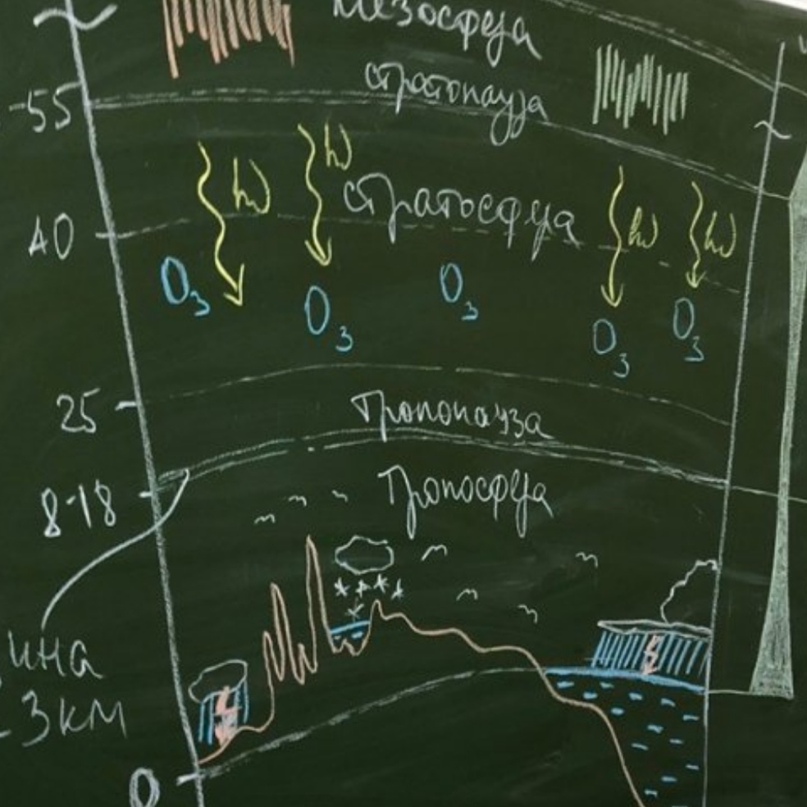 мезосфера
стратопауза
55
hν
hν
стратосфера
hν
hν
40
O₃
O₃
O₃
O₃
O₃
25
тропопауза
8-18
тропосфера
ина
3 км
0